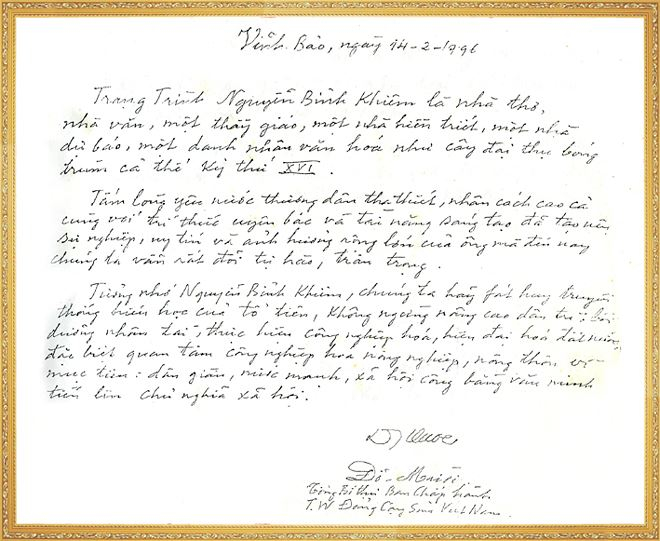 Vĩnh Bảo, ngày 14-2-1996
Trạng Trình Nguyễn Bỉnh Khiêm là nhà thơ,
nhà văn, một thầy giáo, một nhà hiền triết, một nhà
dự báo, một danh nhân văn hoá như cây đại thụ bóng
trùm cả thế kỷ thứ XVI.
Tấm lòng yêu nước thương dân tha thiết, nhân cách cao cả
cùng với trí thức uyên bác và tài năng sáng tạo đã tạo nên
sự nghiệp, uy tín và ảnh hưởng rộng lớn của ông mà đến nay
chúng ta vẫn rất đỗi tự hào, trân trọng.
Tưởng nhớ Nguyễn Bỉnh Khiêm, chúng ta hãy fát huy truyền
thống hiếu học của tổ tiên, không ngừng nâng cao dân trí bồi
dưỡng nhân tài, thực hiện công nghiệp hóa, hiện đại hoá đất nước
đặc biệt quan tâm công nghiệp hoá nông nghiệp, nông thôn vì
mục tiêu: dân giàu, nước mạnh, xã hội công bằng văn minh
tiến lên chủ nghĩa xã hội.
Đỗ-Mười
Tổng Bí thư Ban Chấp hành
T.W Đảng Cộng Sản Việt Nam.